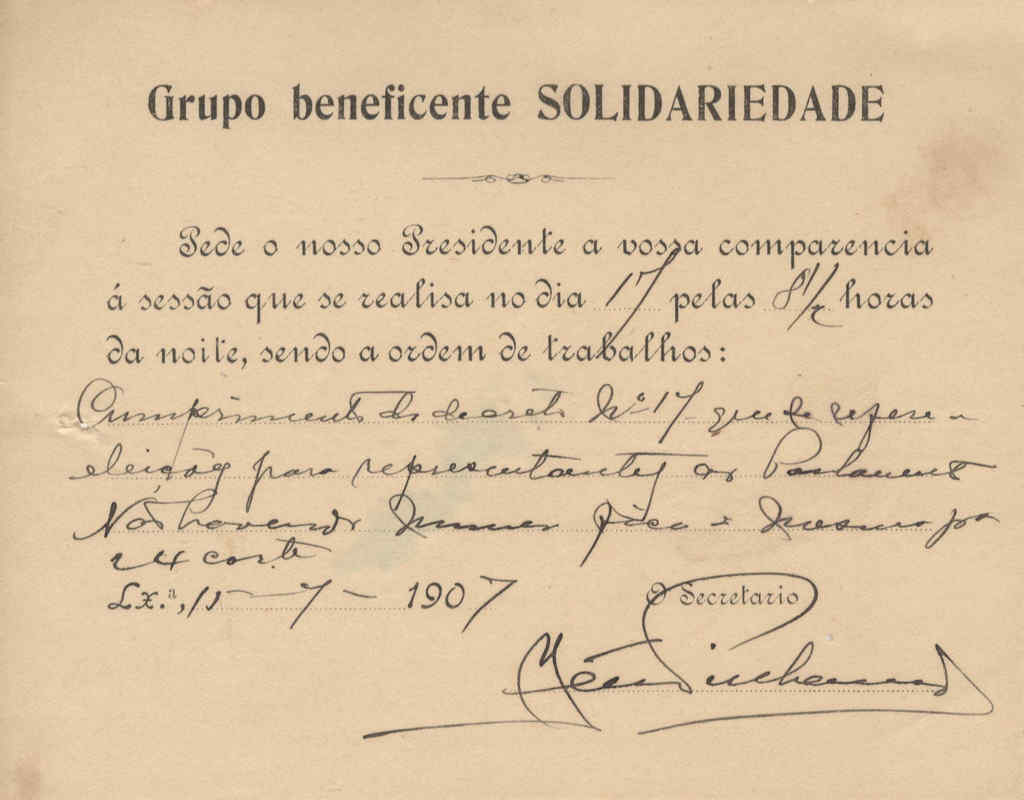 Grupo beneficente SOLIDARIEDADE
Pede o nosso Presidente a vossa comparencia
á sessão que se realisa no dia 17 pelas 8 1/2 horas
da noite, sendo a ordem de trabalhos:
Cumprimento do decreto Nº 17 que se refere a
eleição para representantes ao Parlamento
Não havendo numero fica o mesmo pa
24 corte
Lx.ª, 15-7-1907 O Secretario